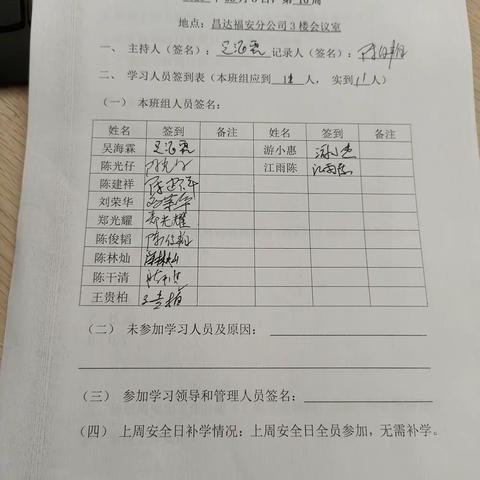 地点：昌达福安分公司3楼会议室
一、 主持人（签名）： 记录人（签名）：
二、 学习人员签到表（本班组应到 11 人， 实到 11 人）
（一） 本班组人员签名：
姓名 签到 备注 姓名 签到 备注
吴海霖 吴海霖 游小惠 游小惠
陈光仔 陈光仔 江雨陈 江雨陈
陈建祥 陈建祥
刘荣华 刘荣华
郑光耀 郑光耀
陈俊韬
陈林灿 陈林灿
陈干清
王贵柏 王贵柏
（二） 未参加学习人员及原因：
（三） 参加学习领导和管理人员签名：
（四） 上周安全日补学情况：上周安全日全员参加，无需补学。